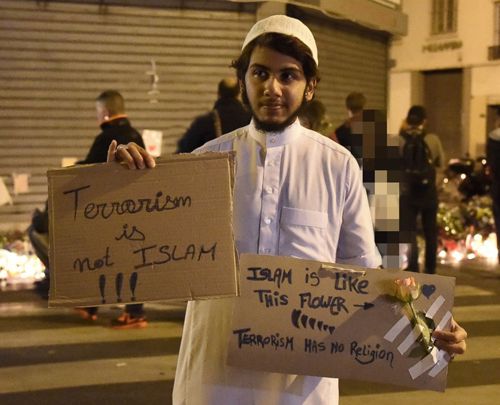 Terrorism
is
not ISLAM
!!!
ISLAM is LIKE
THIS FLOWER →
TERRORISM HAS NO Religion